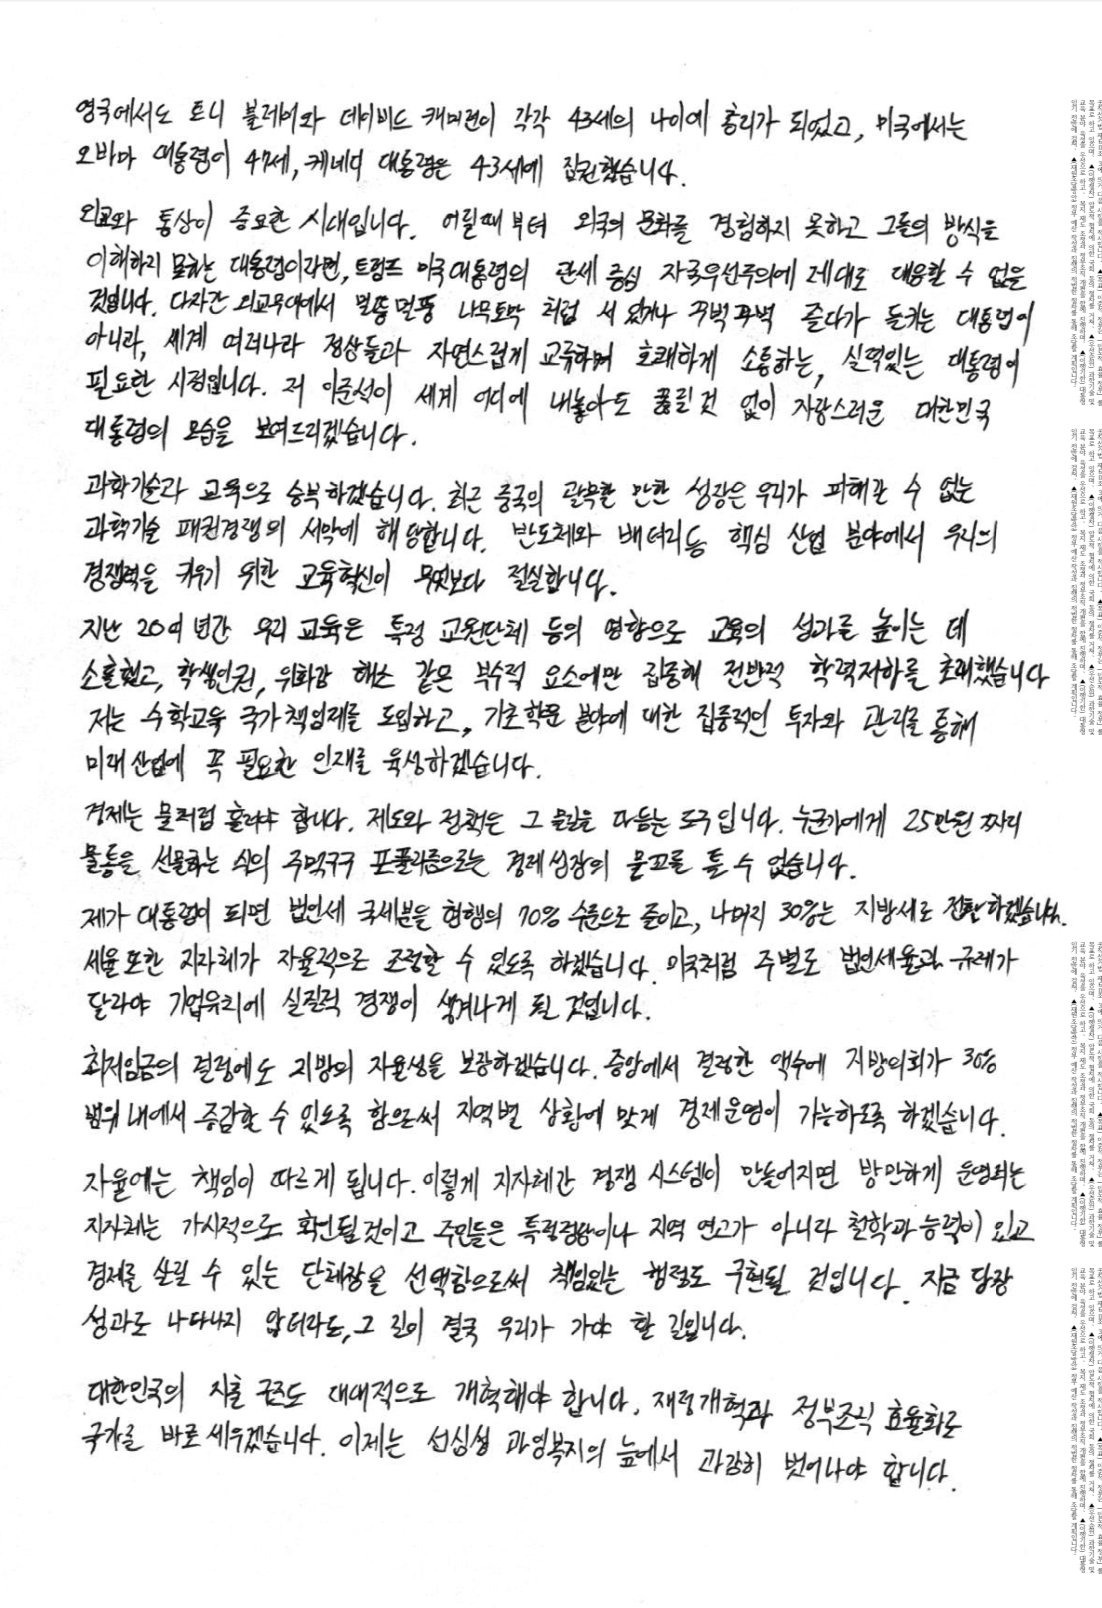 영국에서도 토니 블레어와 데이비드 캐머런이 각각 43세의 나이에 총리가 되었고, 미국에서는
오바마 대통령이 47세, 케네디 대통령은 43세에 집권했습니다.
외교와 통상이 중요한 시대입니다. 어릴때부터 외국의 문화를 경험하지 못하고 그들의 방식을
이해하지 못하는 대통령이라면, 트럼프 미국 대통령의 관세 중심 자국우선주의에 제대로 대응할 수 없을
것입니다. 다자간 외교무대에서 멀뚱멀뚱 나무토막 처럼 서 있거나 꾸벅꾸벅 졸다가 들키는 대통령이
아니라, 세계 여러나라 정상들과 자연스럽게 교류하며 호쾌하게 소통하는, 실력있는 대통령이
필요한 시점입니다. 저 이준석이 세계 어디에 내놓아도 꿀릴 것 없이 자랑스러운 대한민국
대통령의 모습을 보여드리겠습니다.
과학기술과 교육으로 승부하겠습니다. 최근 중국의 괄목할 만한 성장은 우리가 피해갈 수 없는
과학기술 패권경쟁의 서막에 해당합니다. 반도체와 배터리 등 핵심 산업 분야에서 우리의
경쟁력을 키우기 위한 교육혁신이 무엇보다 절실합니다.
지난 20여 년간 우리 교육은 특정 교원단체 등의 영향으로 교육의 성과를 높이는 데
소홀했고, 학생인권, 위화감 해소 같은 부수적 요소에만 집중해 전반적 학력저하를 초래했습니다
저는 수학교육 국가책임제를 도입하고, 기초학문 분야에 대한 집중적인 투자와 관리를 통해
미래산업에 꼭 필요한 인재를 육성하겠습니다.
경제는 물처럼 흘러야 합니다. 제도와 정책은 그 물길을 다듬는 도구입니다. 누군가에게 25만원 짜리
물통을 선물하는 식의 주먹구구 포퓰리즘으로는 경제성장의 물꼬를 틀 수 없습니다.
제가 대통령이 되면 법인세 국세분을 현행의 70% 수준으로 줄이고, 나머지 30%는 지방세로 전환하겠습니다.
세율 또한 지자체가 자율적으로 조정할 수 있도록 하겠습니다. 미국처럼 주별로 법인세율과 규제가
달라야 기업유치에 실질적 경쟁이 생겨나게 될 것입니다.
최저임금의 결정에도 지방의 자율성을 보장하겠습니다. 중앙에서 결정한 액수에 지방의회가 30%
범위 내에서 증감할 수 있도록 함으로써 지역별 상황에 맞게 경제운영이 가능하도록 하겠습니다.
자율에는 책임이 따르게 됩니다. 이렇게 지자체간 경쟁 시스템이 만들어지면 방만하게 운영되는
지자체는 가시적으로 확인될 것이고 주민들은 특정정당이나 지역 연고가 아니라 철학과 능력이 있고
경제를 살릴 수 있는 단체장을 선택함으로써 책임있는 행정도 구현될 것입니다. 지금 당장
성과로 나타나지 않더라도, 그 길이 결국 우리가 가야 할 길입니다.
대한민국의 지출 구조도 대대적으로 개혁해야 합니다. 재정개혁과 정부조직 효율화로
국가를 바로 세우겠습니다. 이제는 선심성 과잉복지의 늪에서 과감히 벗어나야 합니다.